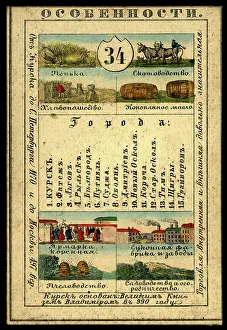 ОСОБЕННОСТИ.
34
Пенька.
Скотоводство.
Хлѣбопашество.
Конопляное масло.
Города:
1. КУРСКЪ.
2. Фатежъ.
3. Льговъ.
4. Рыльскъ.
5. Бѣлгородъ.
6. Путивль.
7. Суджа.
8. Обоянь.
9. Дмитріевъ.
10. Новый Осколъ.
11. Короча.
12. Стар. Осколъ.
13. Тимъ.
14. Щигры.
15. Грайворонъ.
Ярмарка
коренная.
Суконная фа-
брика и заводы
Пчеловодство.
Садоводство и ого-
родничество.
Курскъ основанъ Великимъ Кня-
земъ Владиміромъ въ 990 году.
Отъ Курска до С. Петербурга 1170 и до Москвы
Торговля внутренняя и внѣшняя довольно значительная.